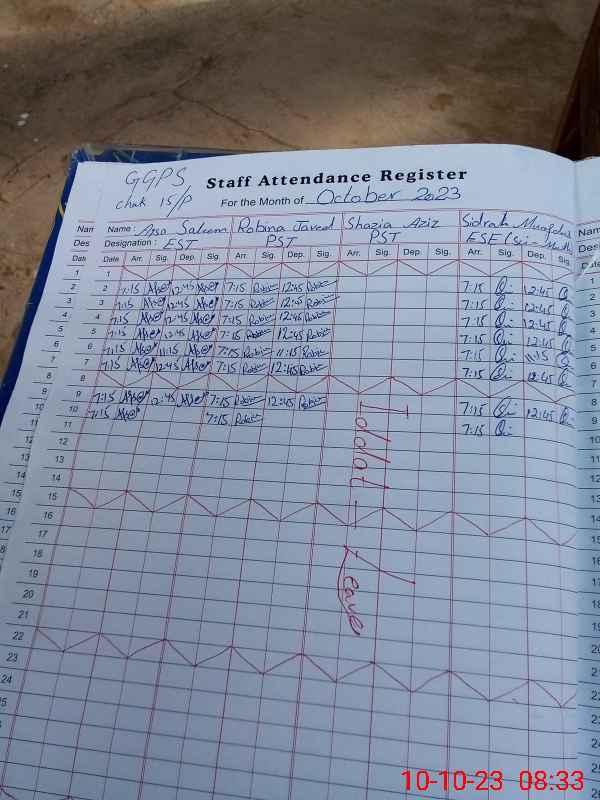 GGPS
chak 15/P
Staff Attendance Register
For the Month of October 2023
Name: Saleem Robina Javed Shazia Aziz Sidrah
Designation: EST PST PST ESE (Sci-Math
Date Arr. Sig. Dep. Sig. Arr. Sig. Dep. Sig. Arr. Sig. Dep. Sig. Arr. Sig. Dep. Sig.
1
2 7:15 12:45 7:15 Robina 12:45 Robina 7:15 12:45
3 7:15 12:45 7:15 Robina 12:45 Robina 7:15 12:45
4 7:15 12:45 7:15 Robina 12:45 Robina 7:15 12:45
5 7:15 12:45 7:15 Robina 12:45 Robina 7:15 12:45
6 7:15 11:15 7:15 Robina 11:15 Robina 7:15 11:15
7 7:15 12:45 7:15 Robina 12:45 Robina 7:15 12:45
8
9 7:15 12:45 7:15 Robina 12:45 Robina 7:15 12:45
10 7:15 7:15 Robina 7:15
11
12
13
14
15
16
17
18
19
20
21
22
23
24
25
26
27
28
Iddat = Leave
10-10-23 08:33